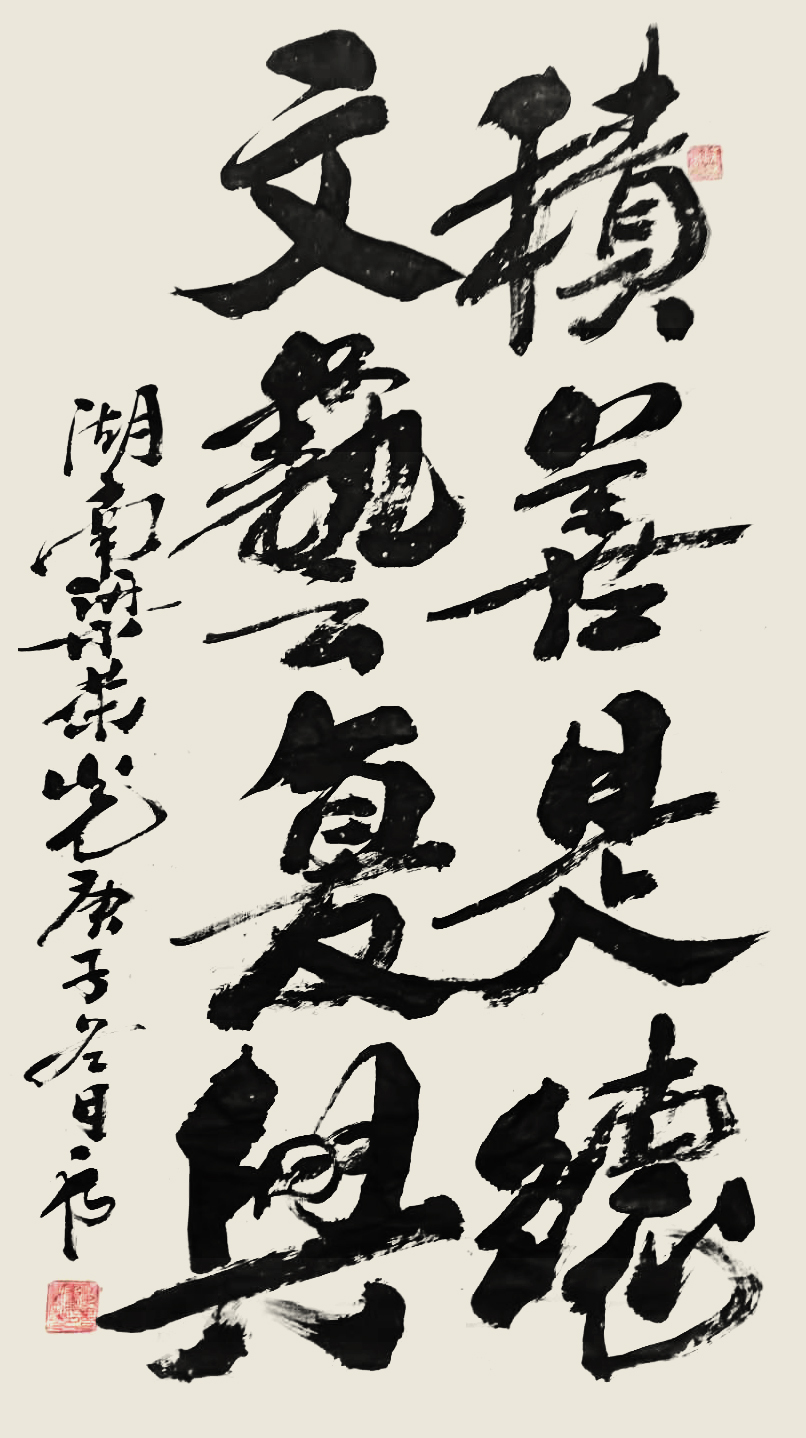 積善是德
文藝复興
湖南梁荣光庚子冬日